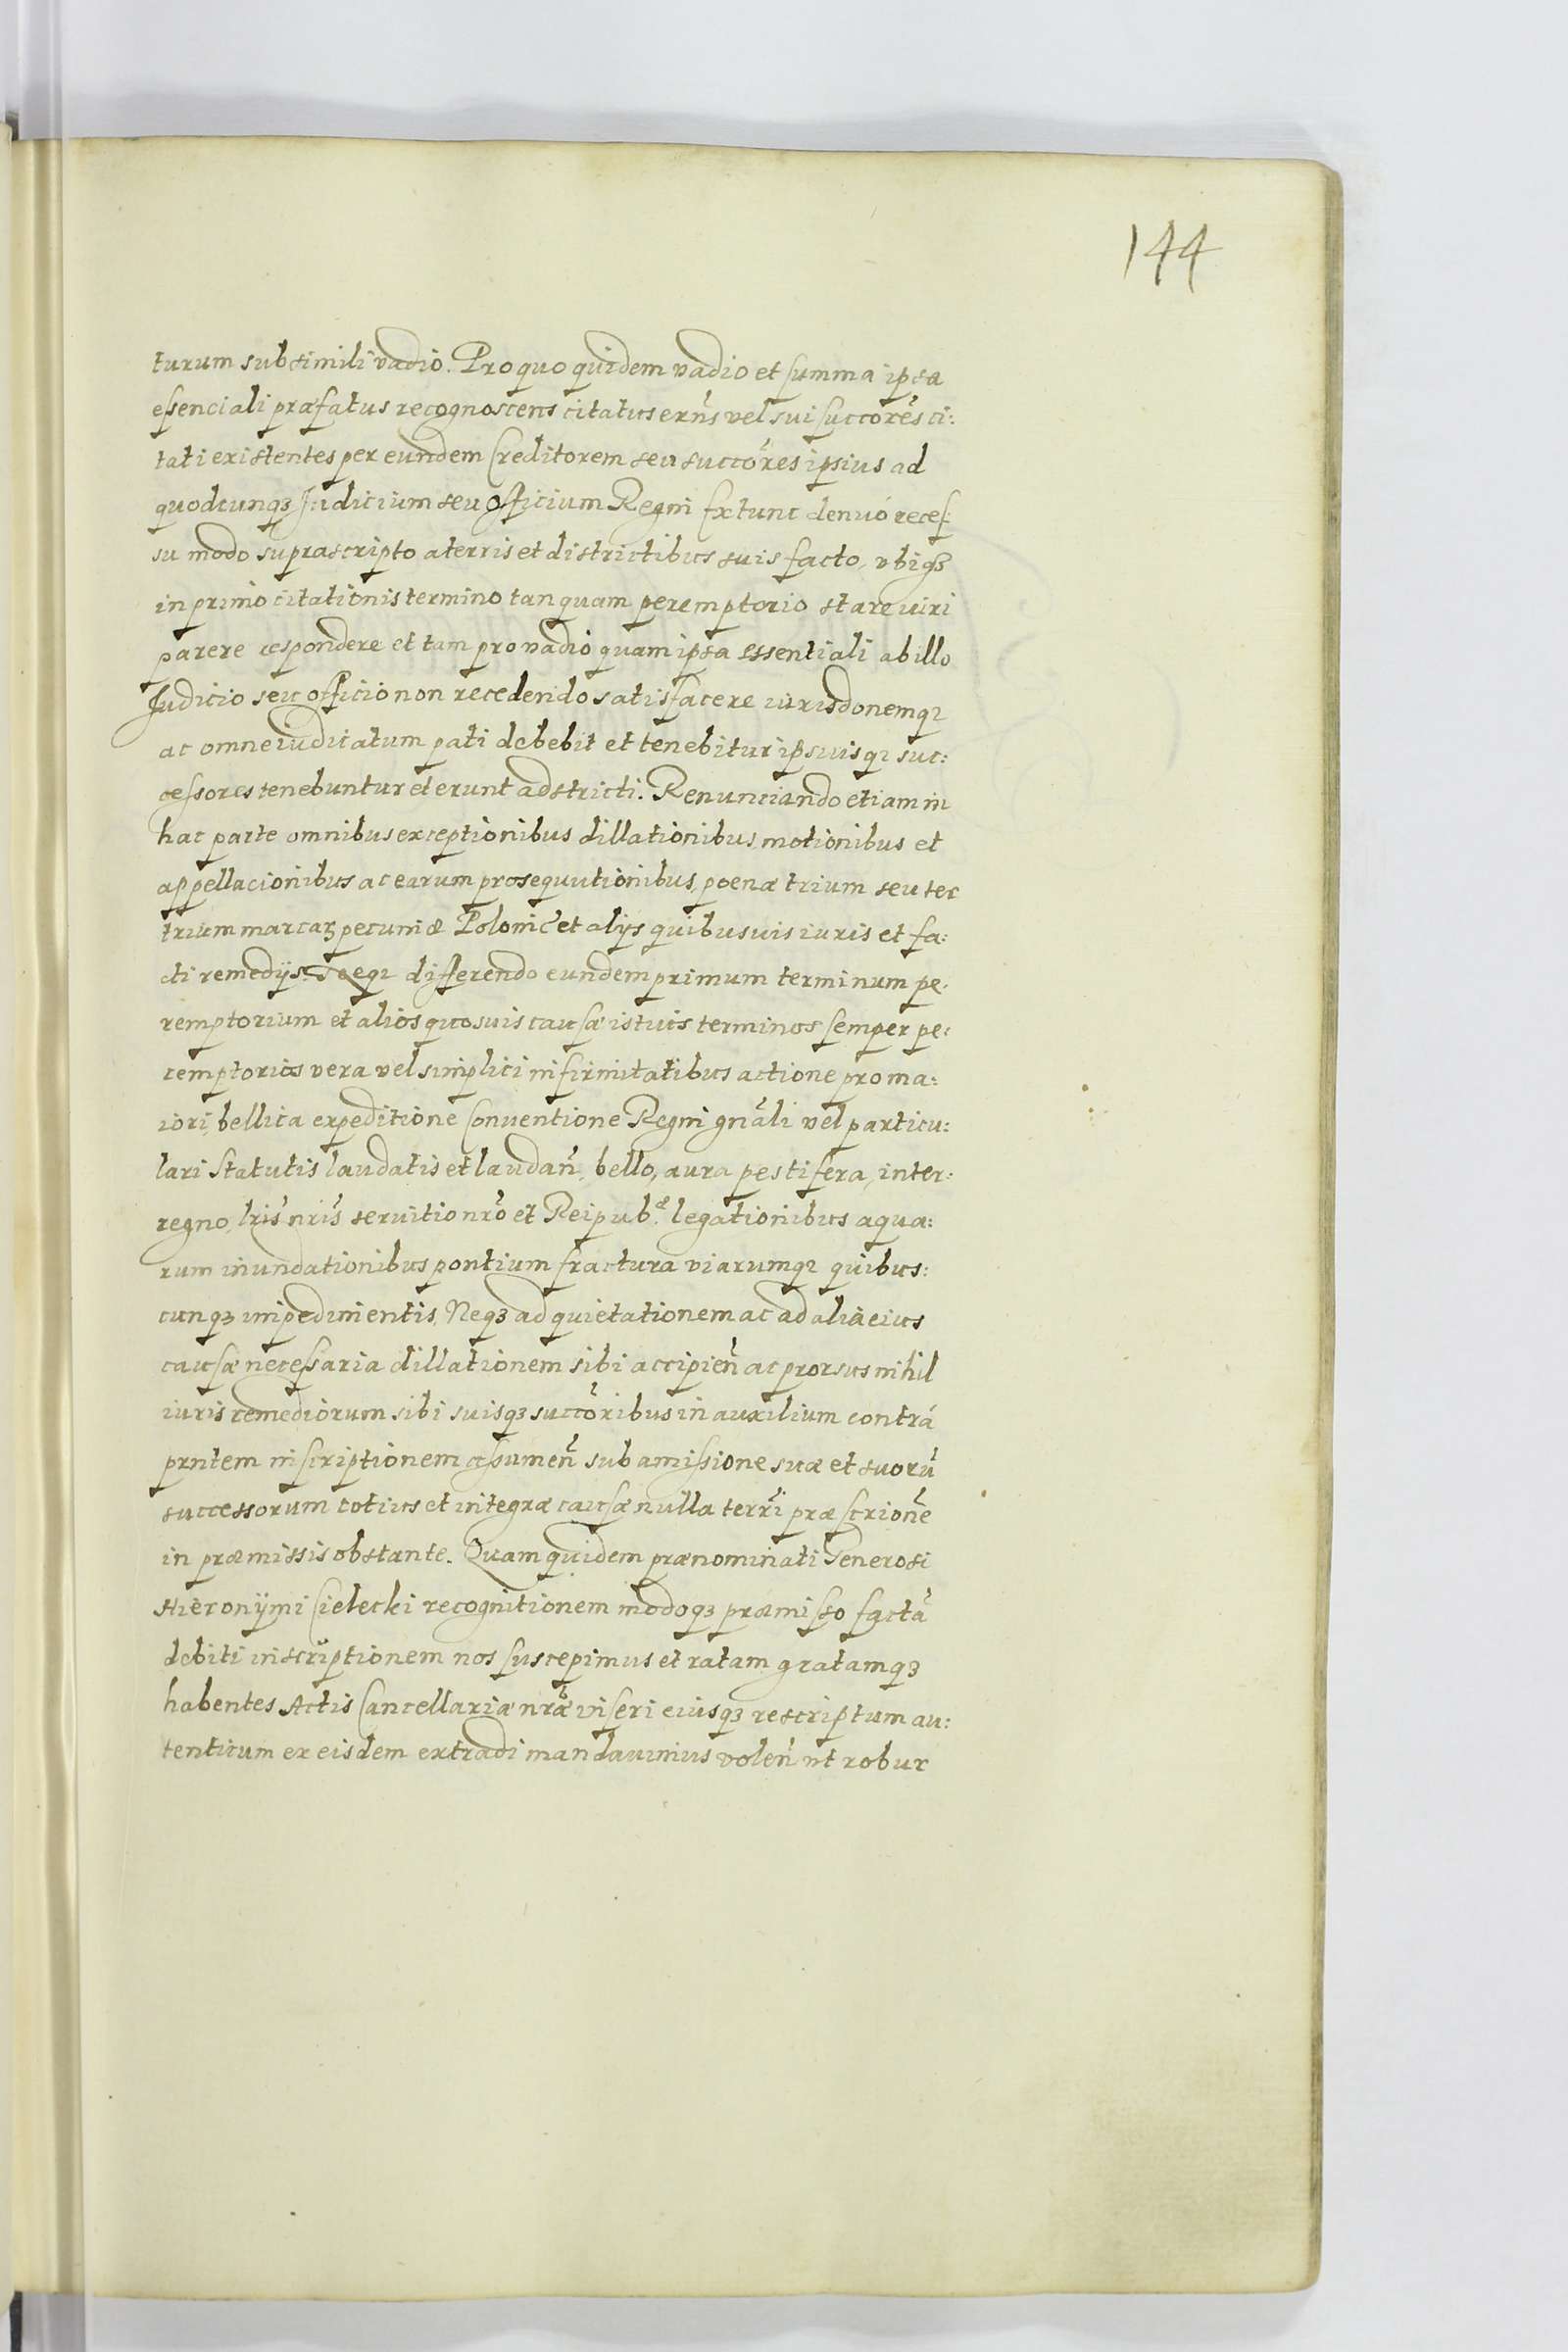 144
turum sub simili vadio. Pro quo quidem vadio et summa ipsa
essenciali præfatus recognoscens citatus exñs vel sui succores̃ ci:
tati existentes per eundem Creditorem seu succores̃ ipsius ad
quodcunqȝ Judicium seu officium Regni Extunc denuó reces
su modo suprascripto a terris et districtibus suis facto, vbiqȝ
in primo citationis termino tanquam peremptorio stare uiri
parere respondere et tam pro vadio quam ipsa essentiali ab illo
Judicio seu officio non recedendo satisfacere iurisdonemqȝ
ac omne iudicatum pati debebit et tenebitur ipsiusqȝ suc:
cessores tenebuntur et erunt adstricti. Renunciando etiam in
hac parte omnibus exceptionibus dillationibus, motionibus et
appellacionibus ac earum prosequutionibus, poenæ trium seu ter
trium marcaȝ pecuniæ Polonic̃ et alijs quibusuis iuris et fa:
cti remedijs. Neqȝ differendo eundem primum terminum pe:
remptorium et alios quosuis causæ istius terminos semper pe:
remptorios vera vel simplici infirmitatibus actione pro ma:
iori, bellica expeditione Conventione Regni gnãli vel particu:
lari statutis laudatis et laudañ, bello, aura pestifera, inter:
regno, lris̃ nris̃ seruitio nrõ et Reipub.æ legationibus aqua:
rum inundationibus pontium fractura viarumqȝ quibus:
cunqȝ impedimentis, Neqȝ ad quietationem ac ad alia eius
causæ necessaria dillationem sibi accipieñ ac prorsus nihil
iuris remediorum sibi suisqȝ succorĩbus in auxilium contrá
prntem inscriptionem assumeñ sub amissione suæ et suorũ
successorum totius et integræ causæ nulla terrĩ præscrionẽ
in præmissis obstante. Quam quidem prænominati Generosi
Hieronÿmi Cielecki recognitionem modoqȝ præmisso factã
debiti inscriptionem nos suscepimus et ratam gratamqȝ
habentes Actis Cancellariæ nræ̃ inseri eiusqȝ rescriptum au:
tenticum ex eisdem extradi mandauimus voleñ vt robur